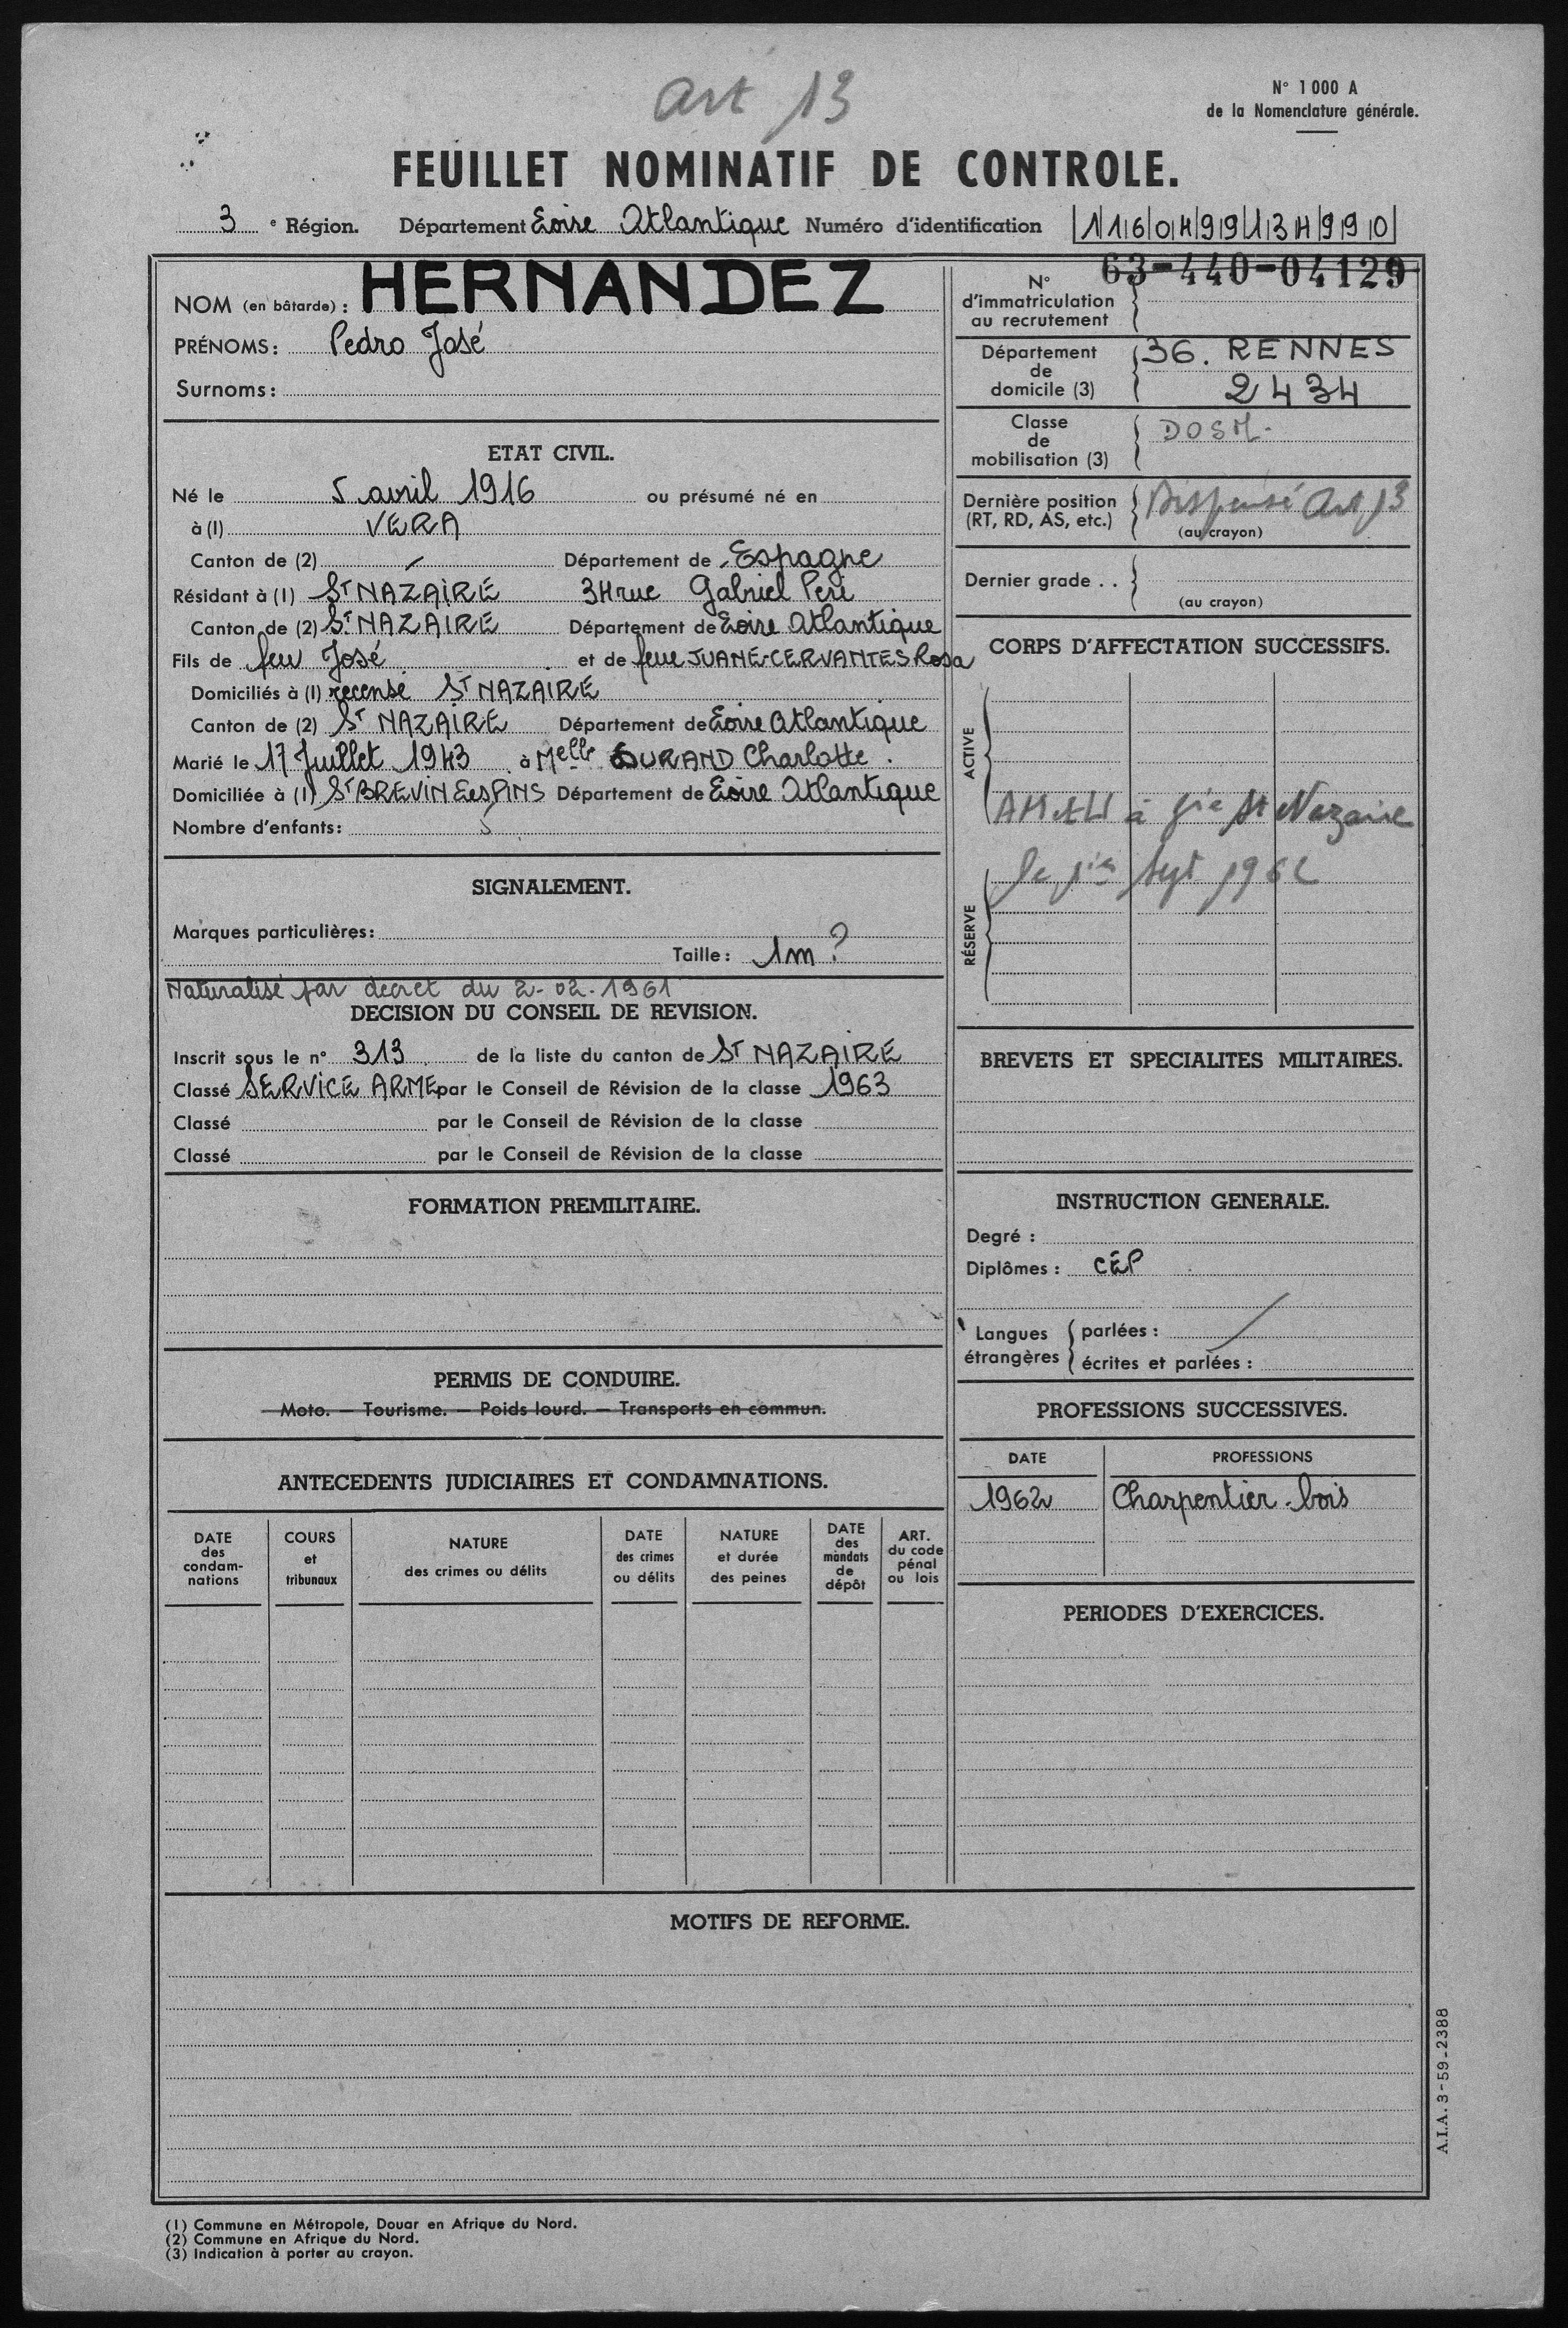 art 13
N° 1000 A
de la Nomenclature générale.
FEUILLET NOMINATIF DE CONTROLE.
3 e Région. Département Loire Atlantique Numéro d'identification |1|16|04|99|134|99|0|
NOM (en bâtarde) : HERNANDEZ
PRÉNOMS : Pedro José
Surnoms :
N° d'immatriculation au recrutement 63-440-04129
Département de domicile (3) 36. RENNES
2434
Classe de mobilisation (3) DOSM.
Dernière position (RT, RD, AS, etc.) Dispensé Art 13
(au crayon)
Dernier grade . .
(au crayon)
ETAT CIVIL.
Né le 5 avril 1916 ou présumé né en
à (1) VERA
Canton de (2) - Département de Espagne
Résidant à (1) St NAZAIRE 34 rue Gabriel Peri
Canton de (2) St NAZAIRE Département de Loire Atlantique
Fils de feu José et de feue JUANE-CERVANTES Rosa
Domiciliés à (1) recensé St NAZAIRE
Canton de (2) St NAZAIRE Département de Loire Atlantique
Marié le 17 Juillet 1943 à Melle DURAND Charlotte.
Domiciliée à (1) St BREVIN Les PINS Département de Loire Atlantique
Nombre d'enfants : 5
CORPS D'AFFECTATION SUCCESSIFS.
ACTIVE
à St Nazaire
Sept 1962
RÉSERVE
SIGNALEMENT.
Marques particulières :
Taille : 1m ?
Naturalisé par decret du 2-02-1961
DECISION DU CONSEIL DE REVISION.
Inscrit sous le n° 313 de la liste du canton de St NAZAIRE
Classé SERVICE ARMÉ par le Conseil de Révision de la classe 1963
Classé par le Conseil de Révision de la classe
Classé par le Conseil de Révision de la classe
BREVETS ET SPECIALITES MILITAIRES.
FORMATION PREMILITAIRE.
INSTRUCTION GENERALE.
Degré :
Diplômes : CEP
Langues étrangères
parlées :
écrites et parlées :
PERMIS DE CONDUIRE.
Moto. — Tourisme. — Poids lourd. — Transports en commun.
PROFESSIONS SUCCESSIVES.
DATE PROFESSIONS
1962 Charpentier bois
ANTECEDENTS JUDICIAIRES ET CONDAMNATIONS.
DATE des condam-nations
COURS et tribunaux
NATURE des crimes ou délits
DATE des crimes ou délits
NATURE et durée des peines
DATE des mandats de dépôt
ART. du code pénal ou lois
PERIODES D'EXERCICES.
MOTIFS DE REFORME.
A.I.A. 3-59-2388
(1) Commune en Métropole, Douar en Afrique du Nord.
(2) Commune en Afrique du Nord.
(3) Indication à porter au crayon.